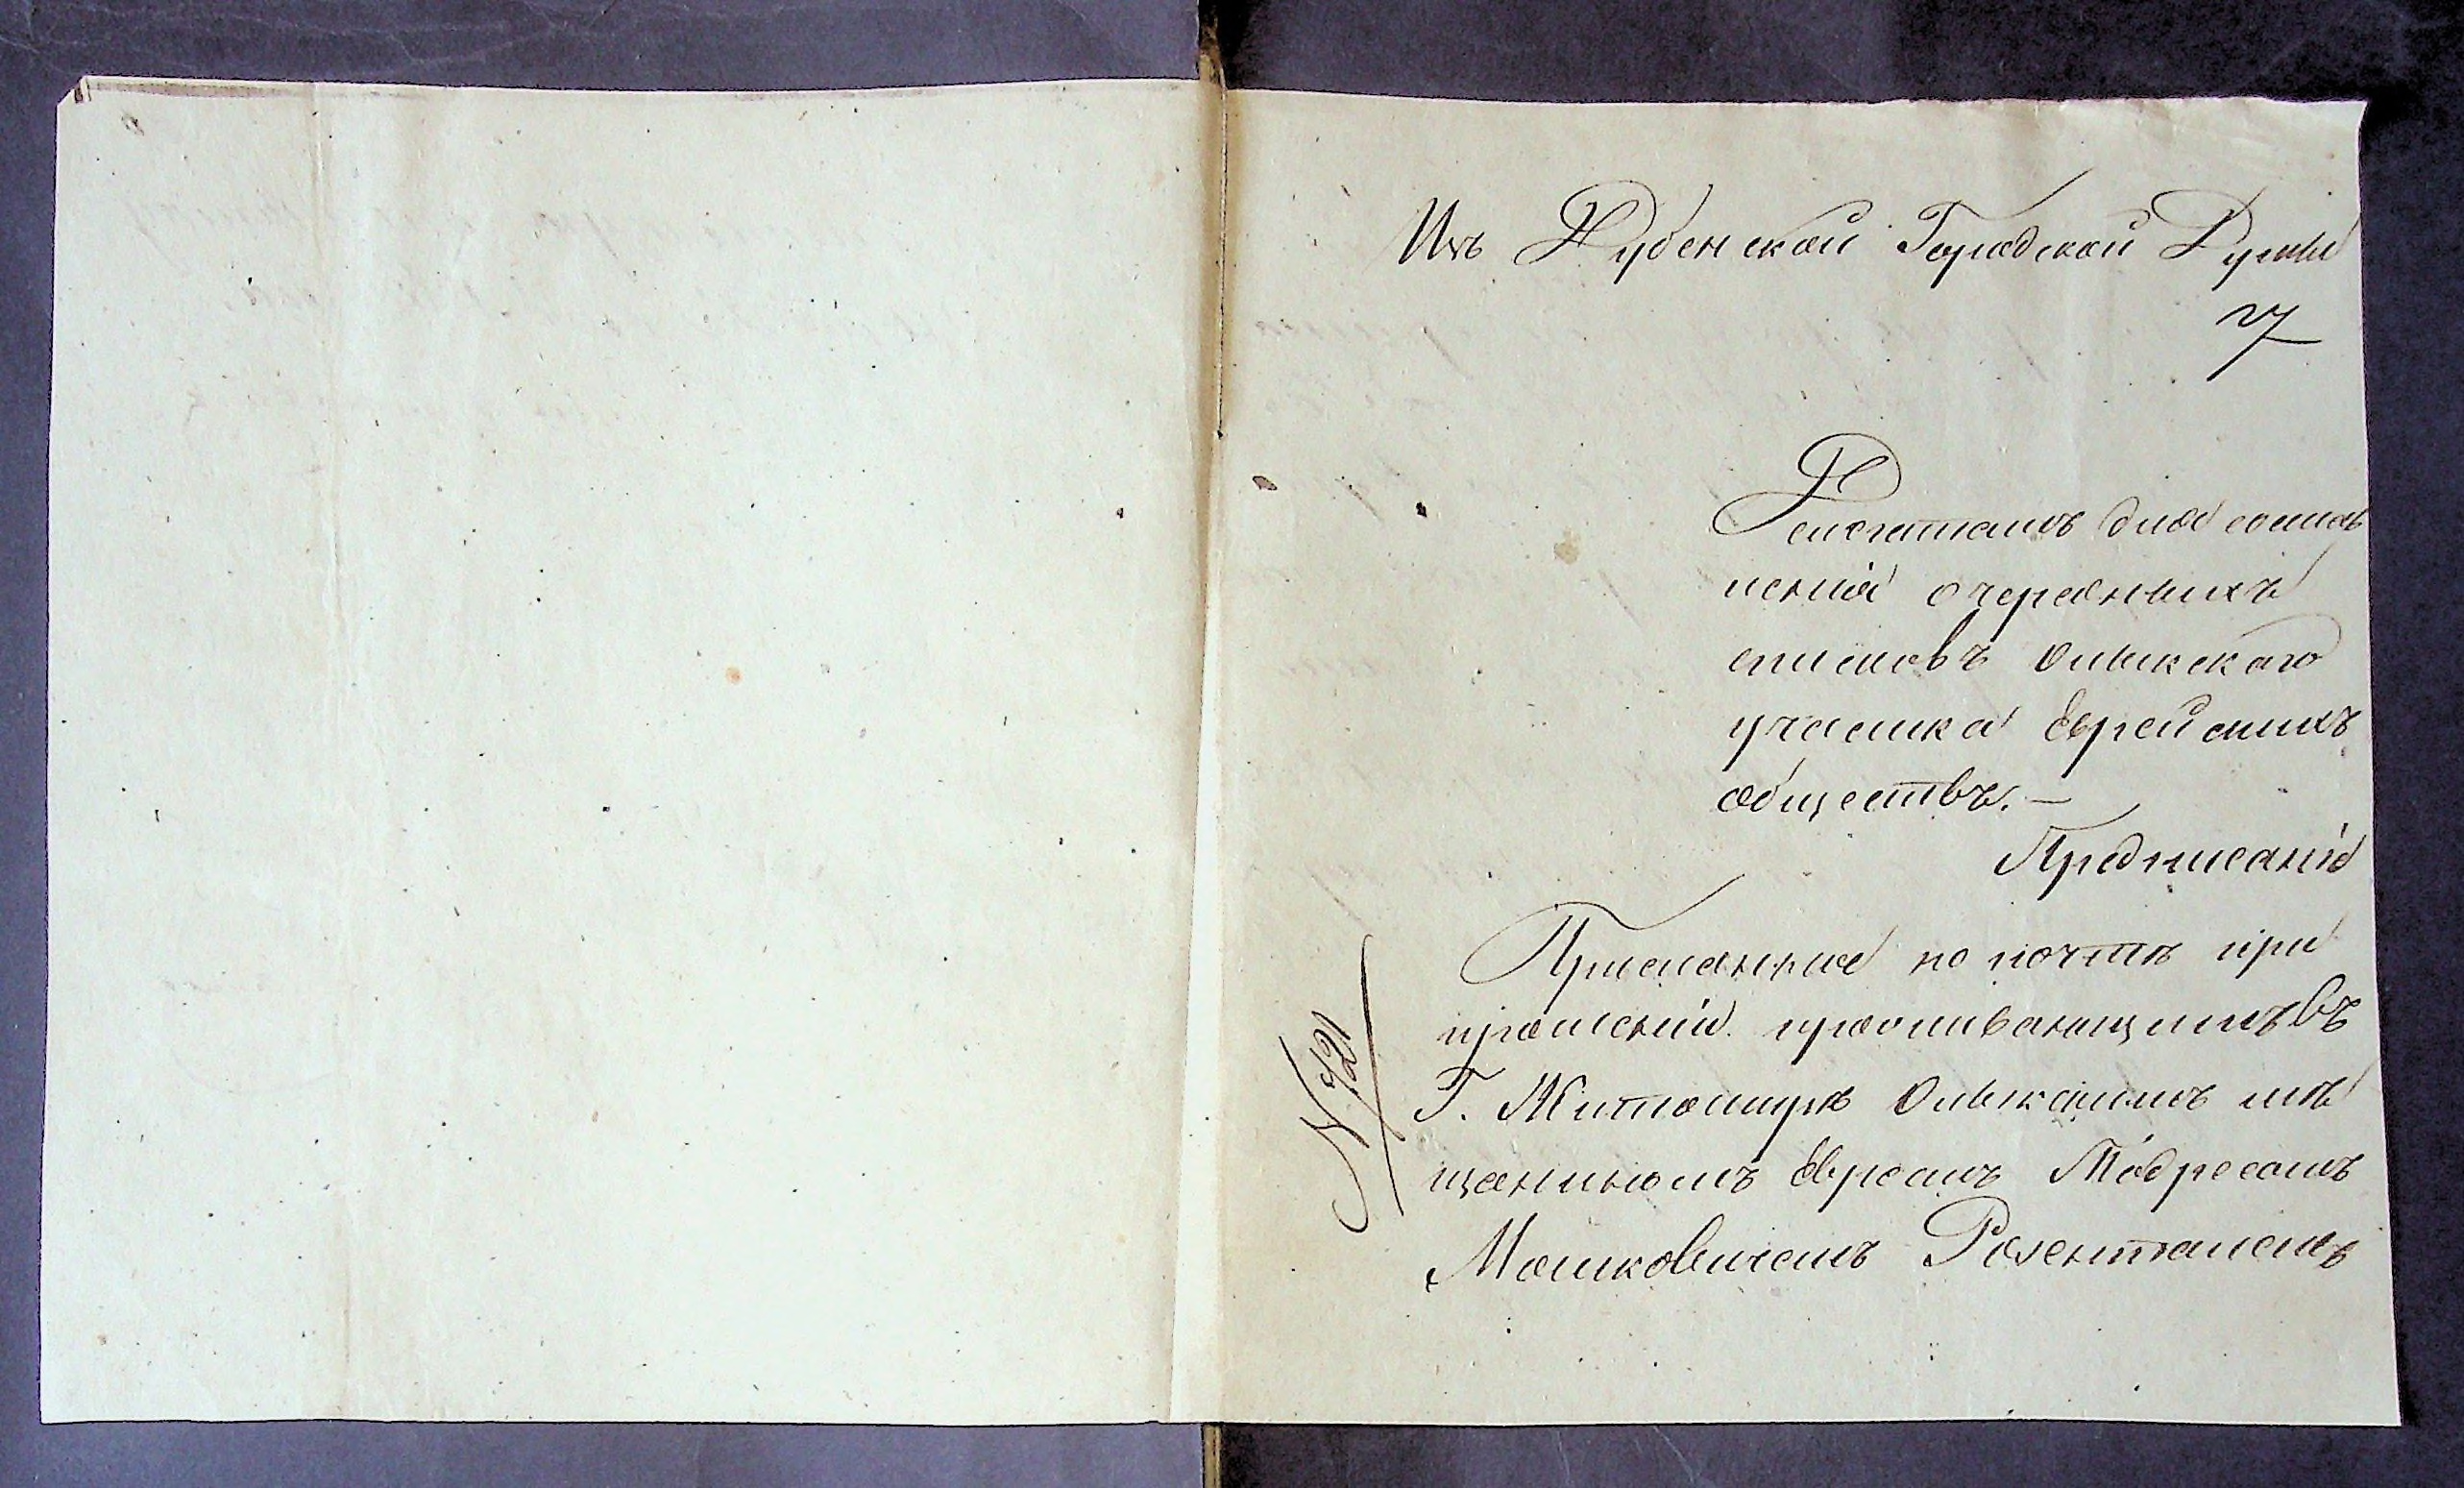 Изъ Дубенской Городской Думы
27
Депутатамъ для состав
ленія очередныхъ
списковъ Олыкскаго
участка Еврейскихъ
обществъ. —
Предписаніе
№ 721
Присланные по почтѣ при
прошеніи проживающимъ въ
Г. Житомирѣ Олыкскимъ мѣ
щаниномъ Евреемъ
Мошковичемъ Розенталемъ